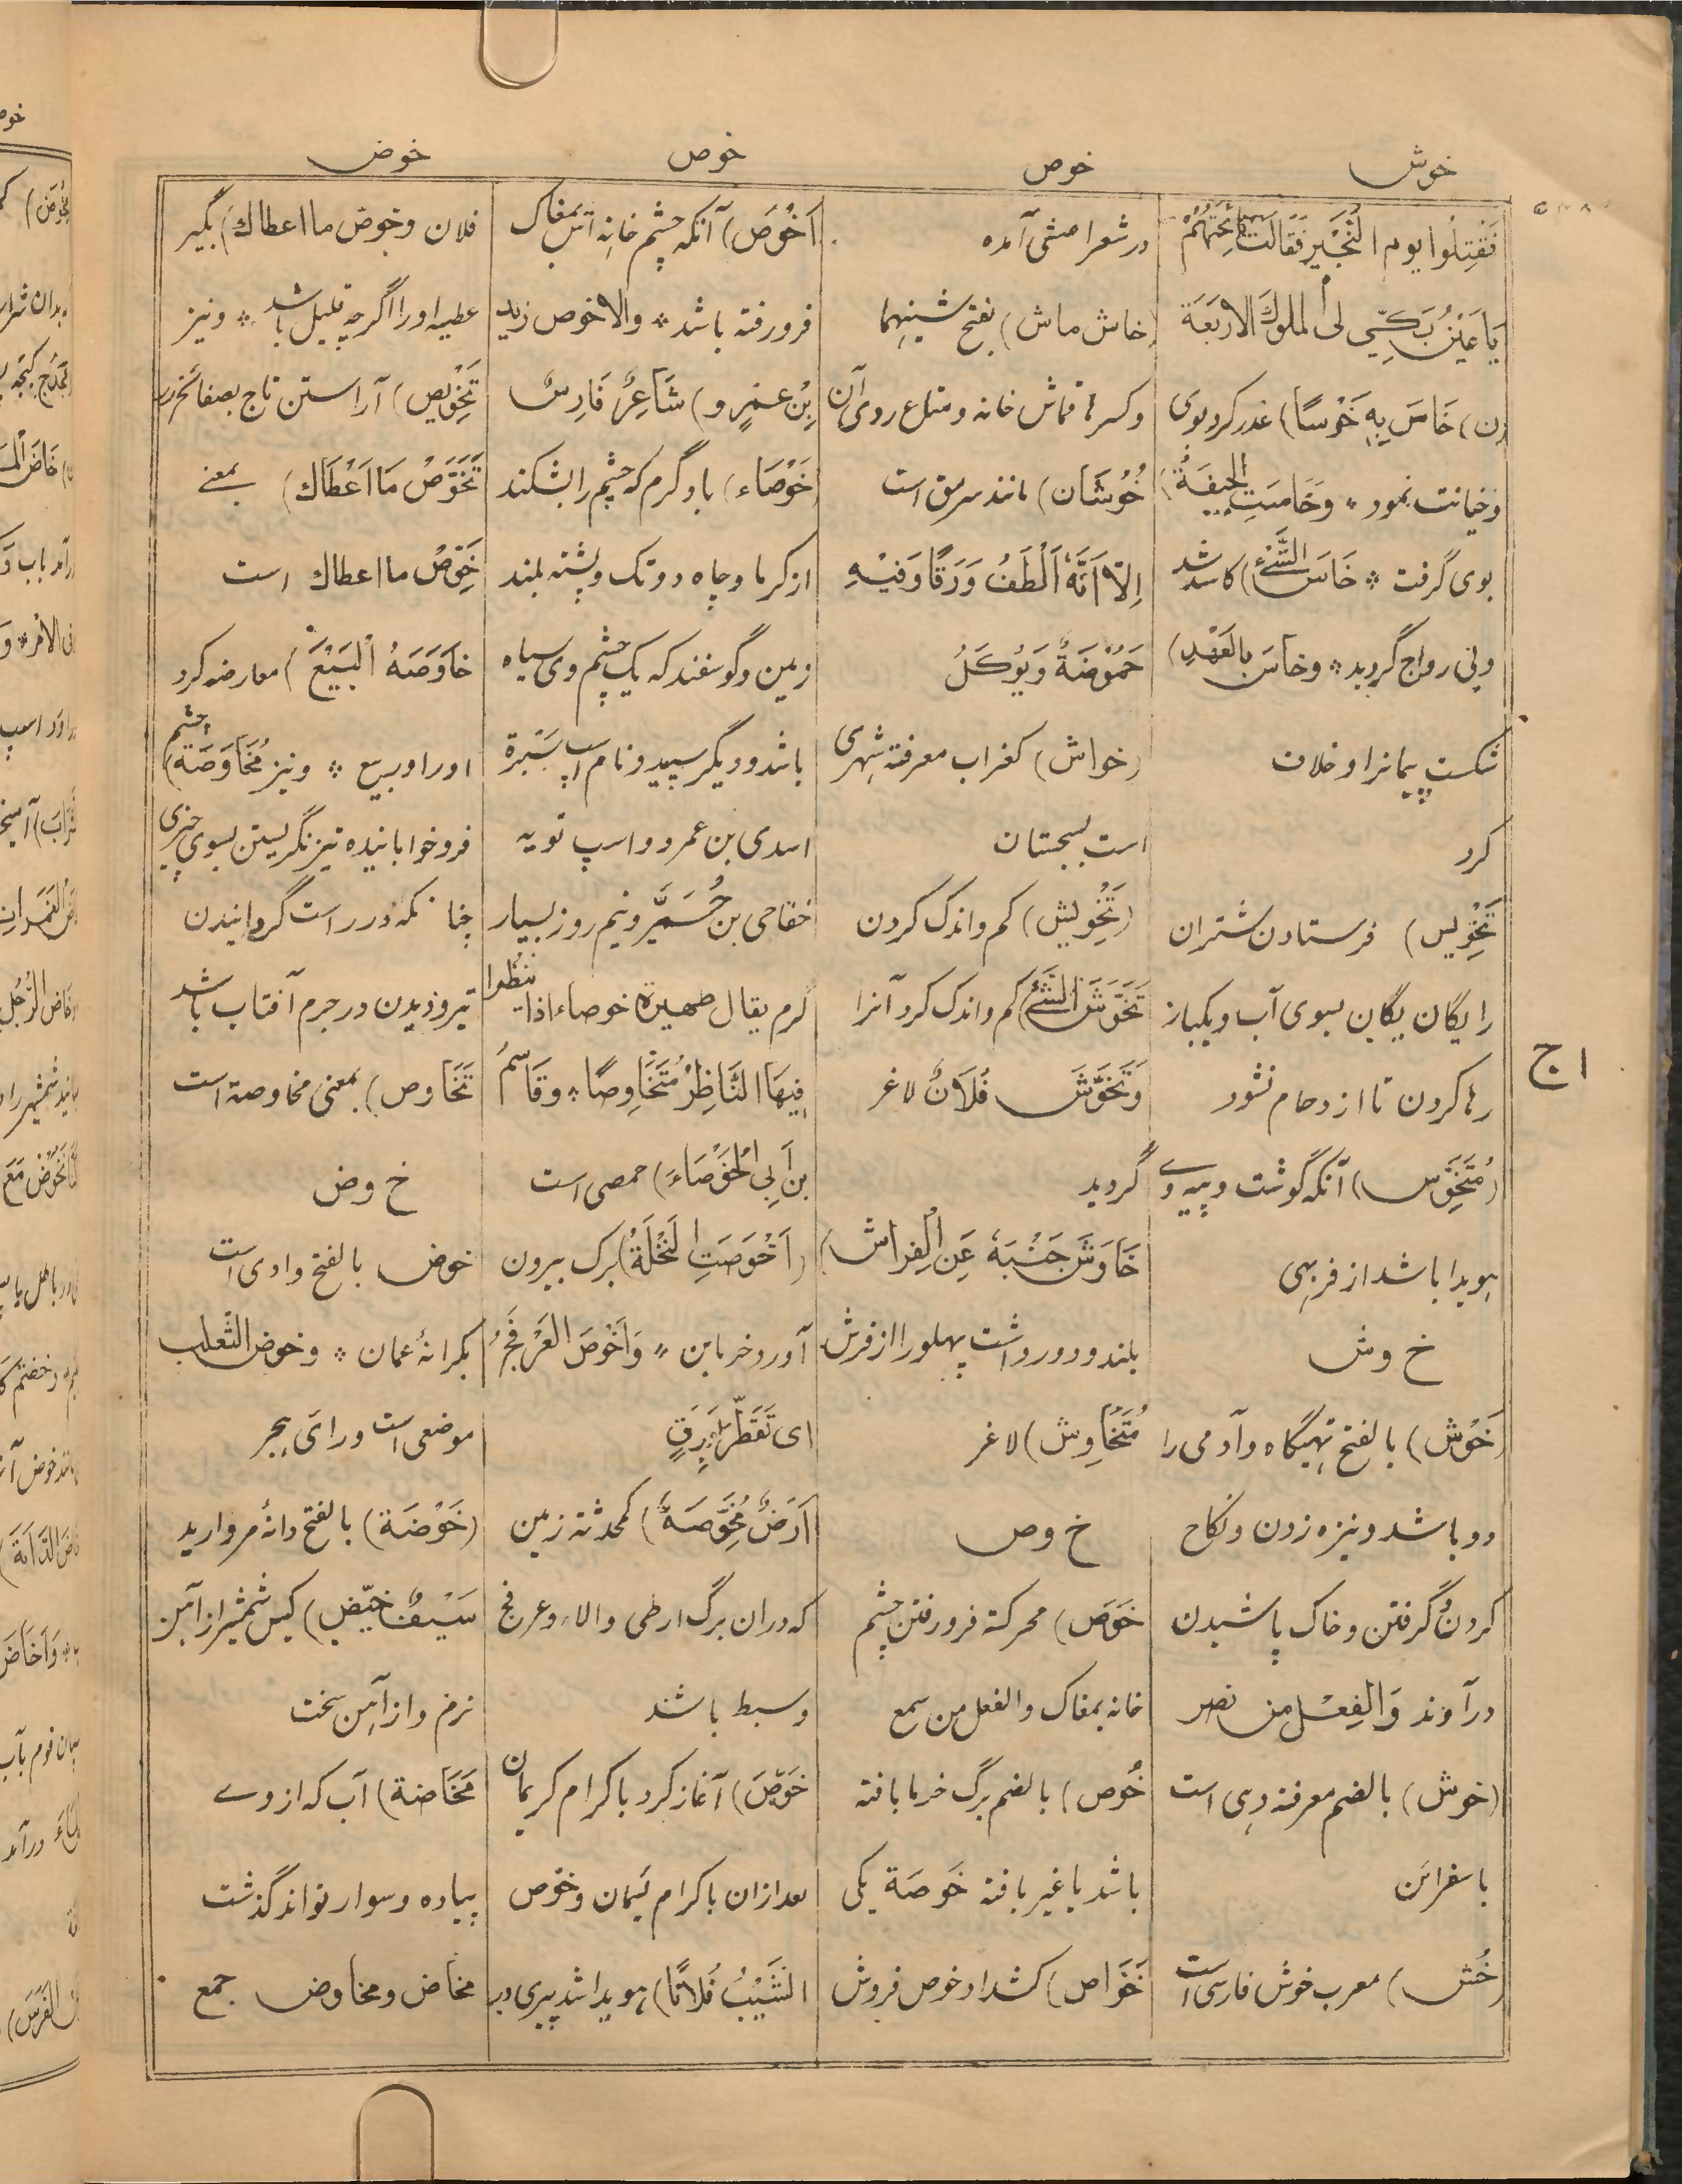 خوش
خوص
خوص
خوض
فَقُتِلُوا يوم النُجَيْرِ فَقَالَتْ نَائِحَتُهُمْ
يَا عَيْنُ بَكِّي لى الملوكَ الاَرْبَعَة
(ن) خَاسَ بِهِ خَوْسًا) غدر کرد بوی
و خیانت نمود ٭ وخَاسَتِ الجِيفَةُ)
بوی گرفت ٭ خَاسَ الشَّئُ) کاسد شد
و بی رواج گردید ٭ وخاسَ بالعَهْدِ)
شکست پیمانرا و خلاف
کرد
تَخْوِيس) فرستادن شتران
را یگان یگان بسوی آب و یکبار
رها کردن تا ازدحام نشود
(مُتَخَوِّس) آنکه گوشت و پیه وے
هویدا باشد از فربهی
خ وش
(خَوْش) بالفتح تهیگاه و آدمی را
دو باشد و نیزه زدن و نکاح
کردن و گرفتن و خاک پاشیدن
درآوند وَالفِعْل من نصر
(خوش) بالضم معرفة دهی است
باسفراین
(خُش) معرب خوش فارسی است
در شعر اعشی آمده
(خاش ماش) بفتح شینهما
و کسرها قماش خانه و متاع ردی آن
(خُوْشَان) مانند سرمق است
اِلاّ اَنَّهُ اَلْطَفُ وَرَقًا وَفِيْهِ
حَمُوْضَةٌ وَيُوْكَلُ
(خواش) کغراب معرفة شهری
است بسجستان
(تَخْوِیْش) کم و اندک کردن
تَخَوَّشَ الشَّئَ) کم و اندک کرد آنرا
وَتَخَوَّشَ فُلَانٌ لاغر
گردید
خَاوَشَ جَنْبَهُ عَنِ الْفِرَاش)
بلند و دور داشت پهلو را از فرش
مُتَخَاوِش) لاغر
خ وص
خَوَص) محرکة فرورفتن چشم
خانه بمغاک والفعل من سمع
خُوص) بالضم برگ خرما بافته
باشد یا غیر بافته خَوصَة یکی
خَوَّاص) کشداد خوص فروش
اَخْوَص) آنکه چشم خانه اش بمغاک
فرورفته باشد ٭ والاخوص زید
بِنْ عَمْرٍو) شَاعِرٌ فَارِسٌ
خَوْصَاء) باد گرم که چشم را بشکند
از گرما و چاه دورتک و پشته بلند
زمین و گوسفند که یک چشم وی سیاه
باشد و دیگر سپید و نام اسپ سَبْرة
اسدی بن عمرو و اسپ توبه
خفاجی بن حُمَيَّر و نیم روز بسیار
گرم یقال ظهیرة خوصاء اذا
فِيهَا النَّاظِرُ مُتَخَاوِصًا ٭ وقَاسِمُ
بن اَبِی الْخَوْصَاءَ) حمصی است
(اَخْوَصَتِ النَخْلَةُ) برگ بیرون
آورد خرمابن ٭ وَاَخْوَصَ العَرْفَجُ
ای تَفَطَّرَ بِوَرَقٍ
اَرْضٌ مُخَوِّصَةٌ) کمحدثة زمین
که دران برگ ارطی والاء وعرفج
وسبط باشد
خَوَّصَ) آغاز کرد باکرام کریمان
بعد ازان باکرام لئیمان وخوّص
الشَّيْبُ فُلَانًا) هویدا شد پیری در
فلان وخوّض ما اعطاك) بگیر
عطیه او را اگرچه قلیل باشد ٭ و نیز
تَخْوِیص) آراستن تاج بصفائح زر
تَخَوَّصْ مَا اَعْطَاك) بمعنے
خَوِّصْ ما اعطاك است
خَاوَصَهُ الْبَيْعَ) معارضه کرد
او را در بیع ٭ و نیز مُخَاوَصَة) چشم
فروخوابانیده تیز نگریستن بسوی چیزی
چنانکه در راست گردانیدن
تیر و دیدن در جرم آفتاب باشد
تَخَاوص) بمعنی مخاوصة است
خ وض
خوض بالفتح وادی است
بکرانهٔ عمان ٭ وخوض الثعلب
موضعی است ورای هجر
(خَوْضَة) بالفتح دانهٔ مروارید
سَيْفٌ خَيِّض) کیس شمشیر از آهن
نرم و از آهن سخت
مَخَاضة) آب که از وے
پیاده و سوار تواند گذشت
مخاض و مخاوض جمع
اج